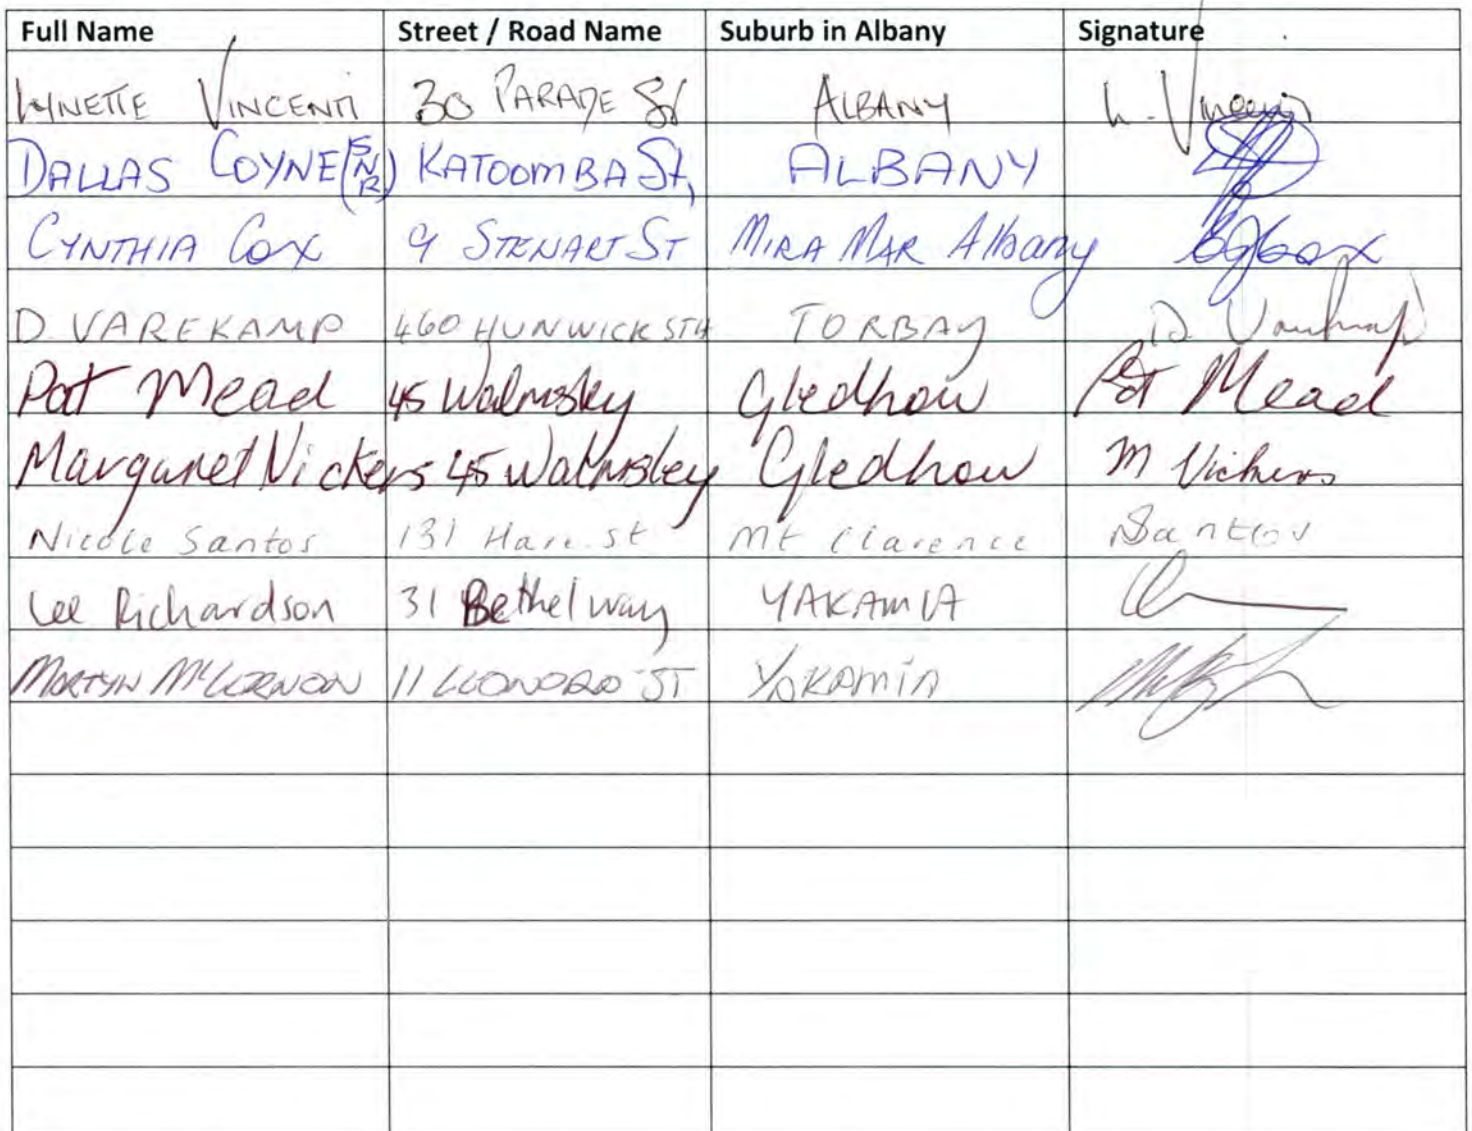 Full Name Street / Road Name Suburb in Albany Signature
LYNETTE VINCENTI 30 PARADE St ALBANY L. Vincenti
DALLAS COYNE (SNR) KATOOMBA St, ALBANY
CYNTHIA Cox 9 STEWART ST MIRA MAR Albany
D. VAREKAMP 460 HUNWICK STH TORBAY D. Varekamp
Pat Mead 45 Walmsley Gledhow Pat Mead
Margaret Vickers 45 Walmsley Gledhow M Vickers
Nicole Santos 131 Hare st Mt Clarence Santos
Lee Richardson 31 Bethel way YAKAMIA
MARTYN McLERNON 11 LEONORA ST YAKAMIA